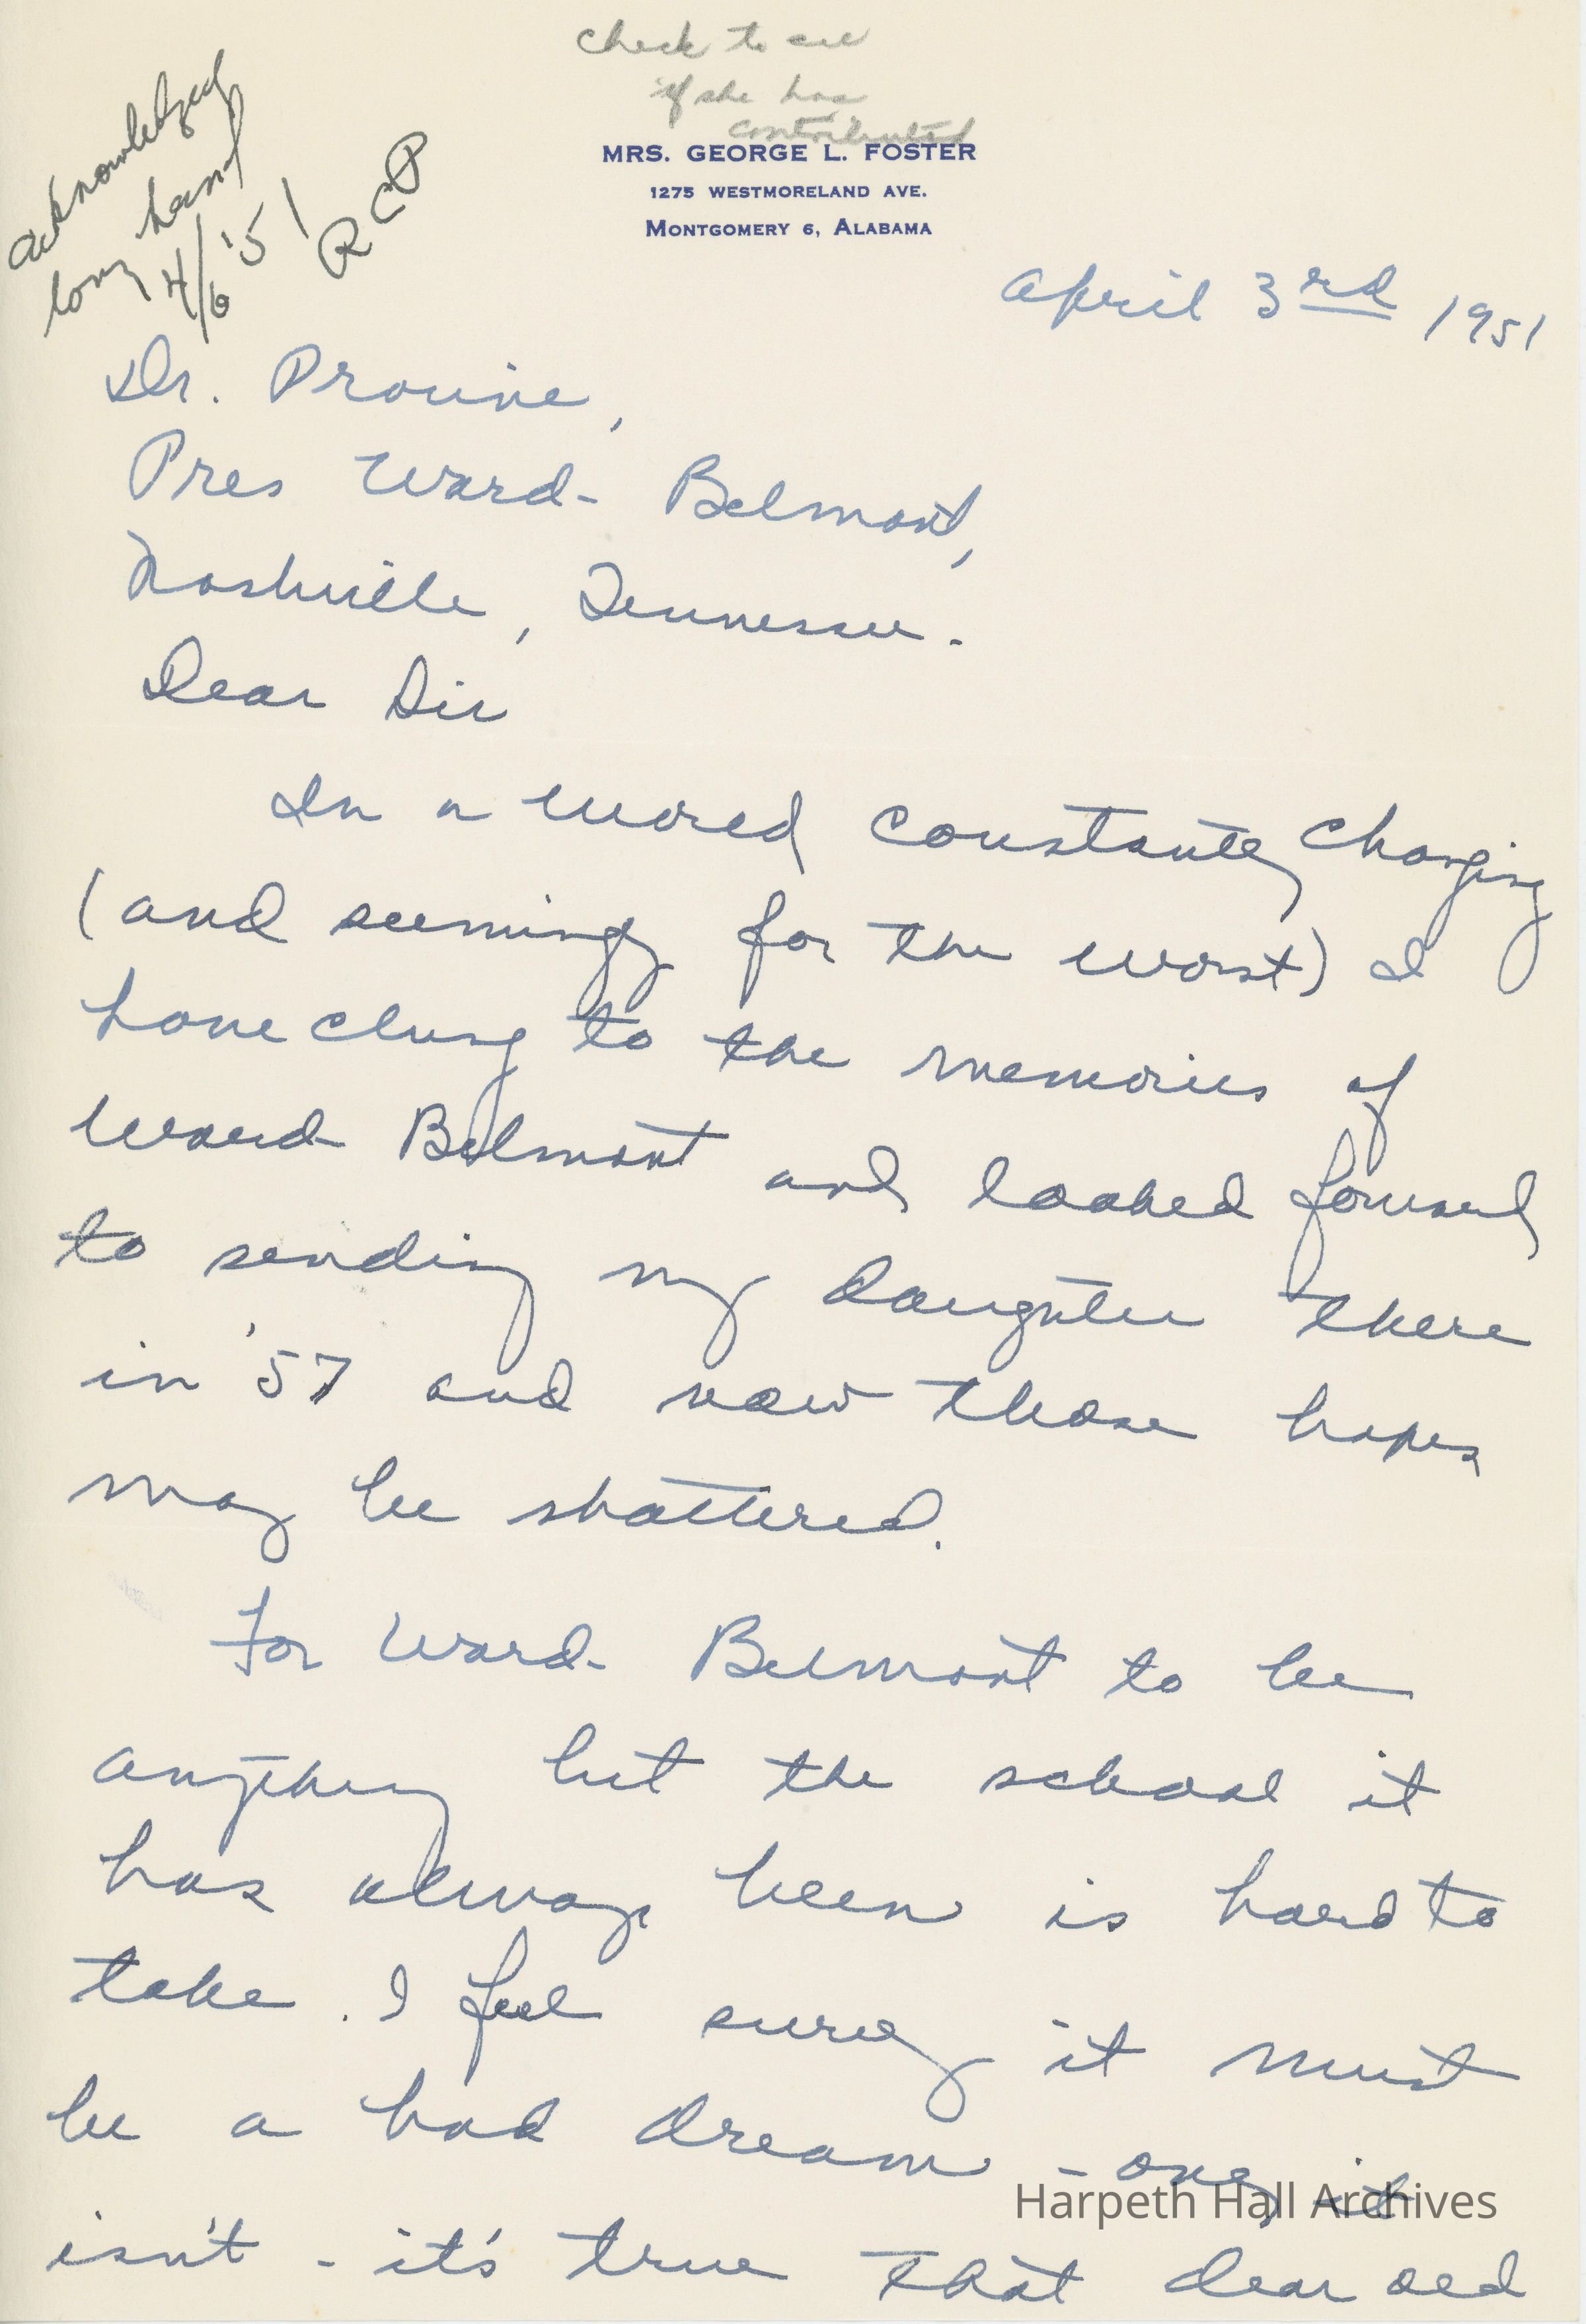 check to see
if she has
contributed
acknowledged
long hand
4/6 '51
RCP
MRS. GEORGE L. FOSTER
1275 WESTMORELAND AVE.
MONTGOMERY 6, ALABAMA
April 3rd 1951
Dr. Provine,
Pres Ward-Belmont,
Nashville, Tennessee.
Dear Sir
In a world constantly changing
(and seemingly for the worst) I
have clung to the memories of
Ward Belmont and looked forward
to sending my daughter there
in '57 and now those hopes
may be shattered.
For Ward-Belmont to be
anything but the school it
has always been is hard to
take. I feel surely it must
be a bad dream - only it
isn't - it's true that dear old
Harpeth Hall Archives